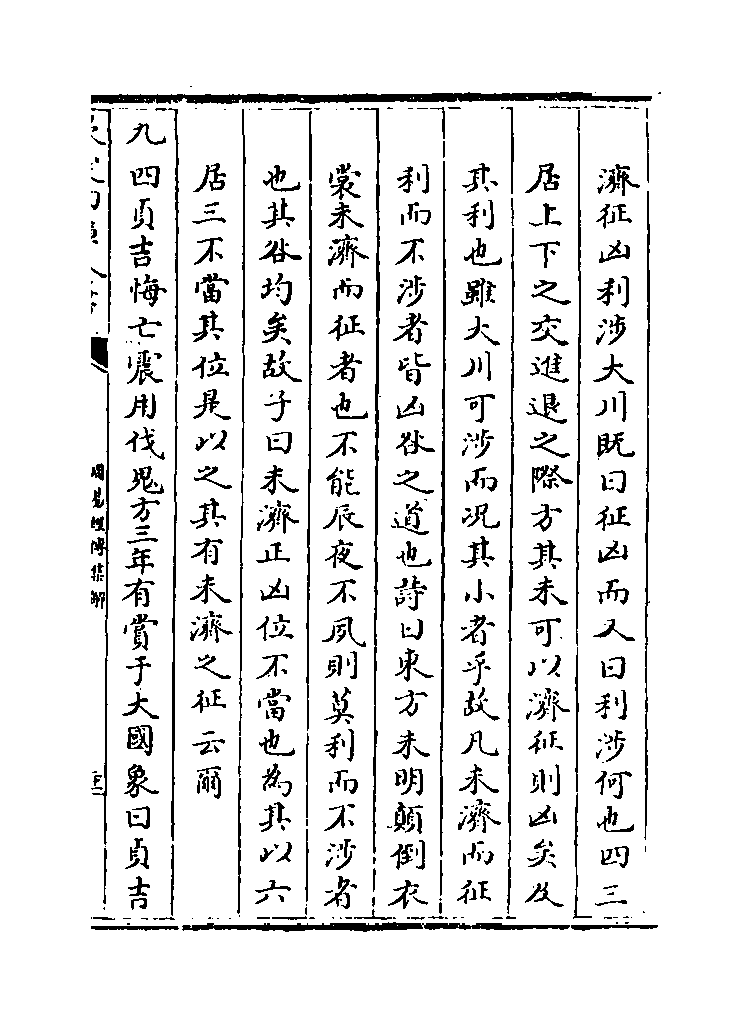 濟征凶利涉大川既曰征凶而又曰利涉何也四三
居上下之交進退之際方其未可以濟征則凶矣及
其利也雖大川可涉而况其小者乎故凡未濟而征
利而不涉者皆凶咎之道也詩曰東方未明顛倒衣
裳未濟而征者也不能辰夜不夙則莫利而不涉者
也其咎均矣故子曰未濟正凶位不當也為其以六
居三不當其位是以之其有未濟之征云爾
九四貞吉悔亡震用伐鬼方三年有賞于大國象曰貞吉
周易經傳集解